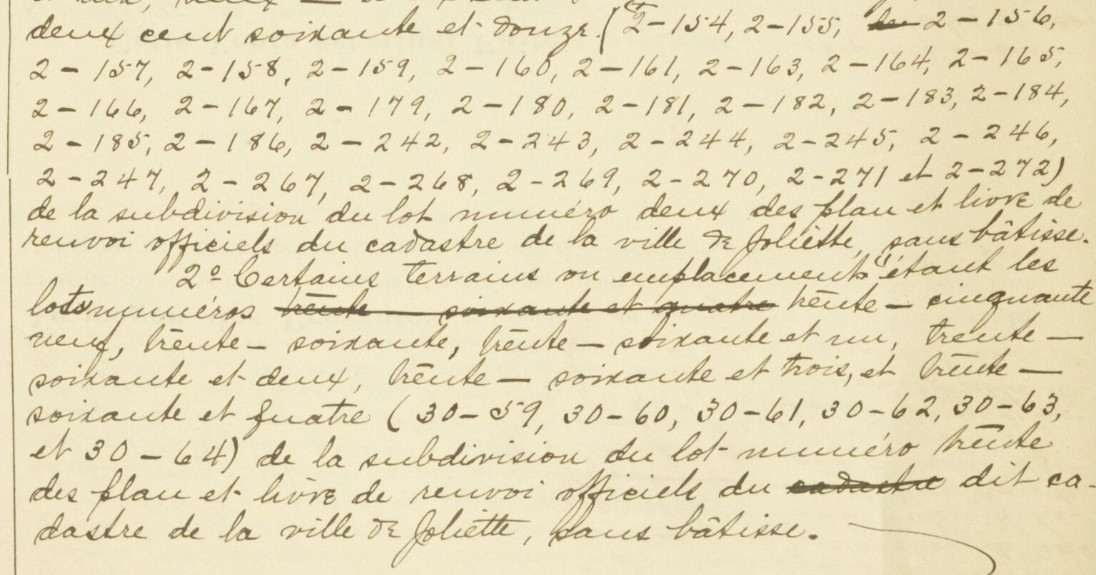 deux cent soixante et douze (2-154, 2-155, 2-156,
2-157, 2-158, 2-159, 2-160, 2-161, 2-163, 2-164, 2-165,
2-166, 2-167, 2-179, 2-180, 2-181, 2-182, 2-183, 2-184,
2-185, 2-186, 2-242, 2-243, 2-244, 2-245, 2-246,
2-247, 2-267, 2-268, 2-269, 2-270, 2-271 et 2-272)
de la subdivision du lot numéro deux des plan et livre de
renvoi officiels du cadastre de la ville de Joliette, sans bâtisse.
2º Certains terrains ou emplacements étant les
lots numéros trente — soixante et quatre trente — cinquante
neuf, trente — soixante, trente — soixante et un, trente —
soixante et deux, trente — soixante et trois, et trente —
soixante et quatre (30-59, 30-60, 30-61, 30-62, 30-63,
et 30-64) de la subdivision du lot numéro trente
des plan et livre de renvoi officiels du cadastre dit ca-
dastre de la ville de Joliette, sans bâtisse.